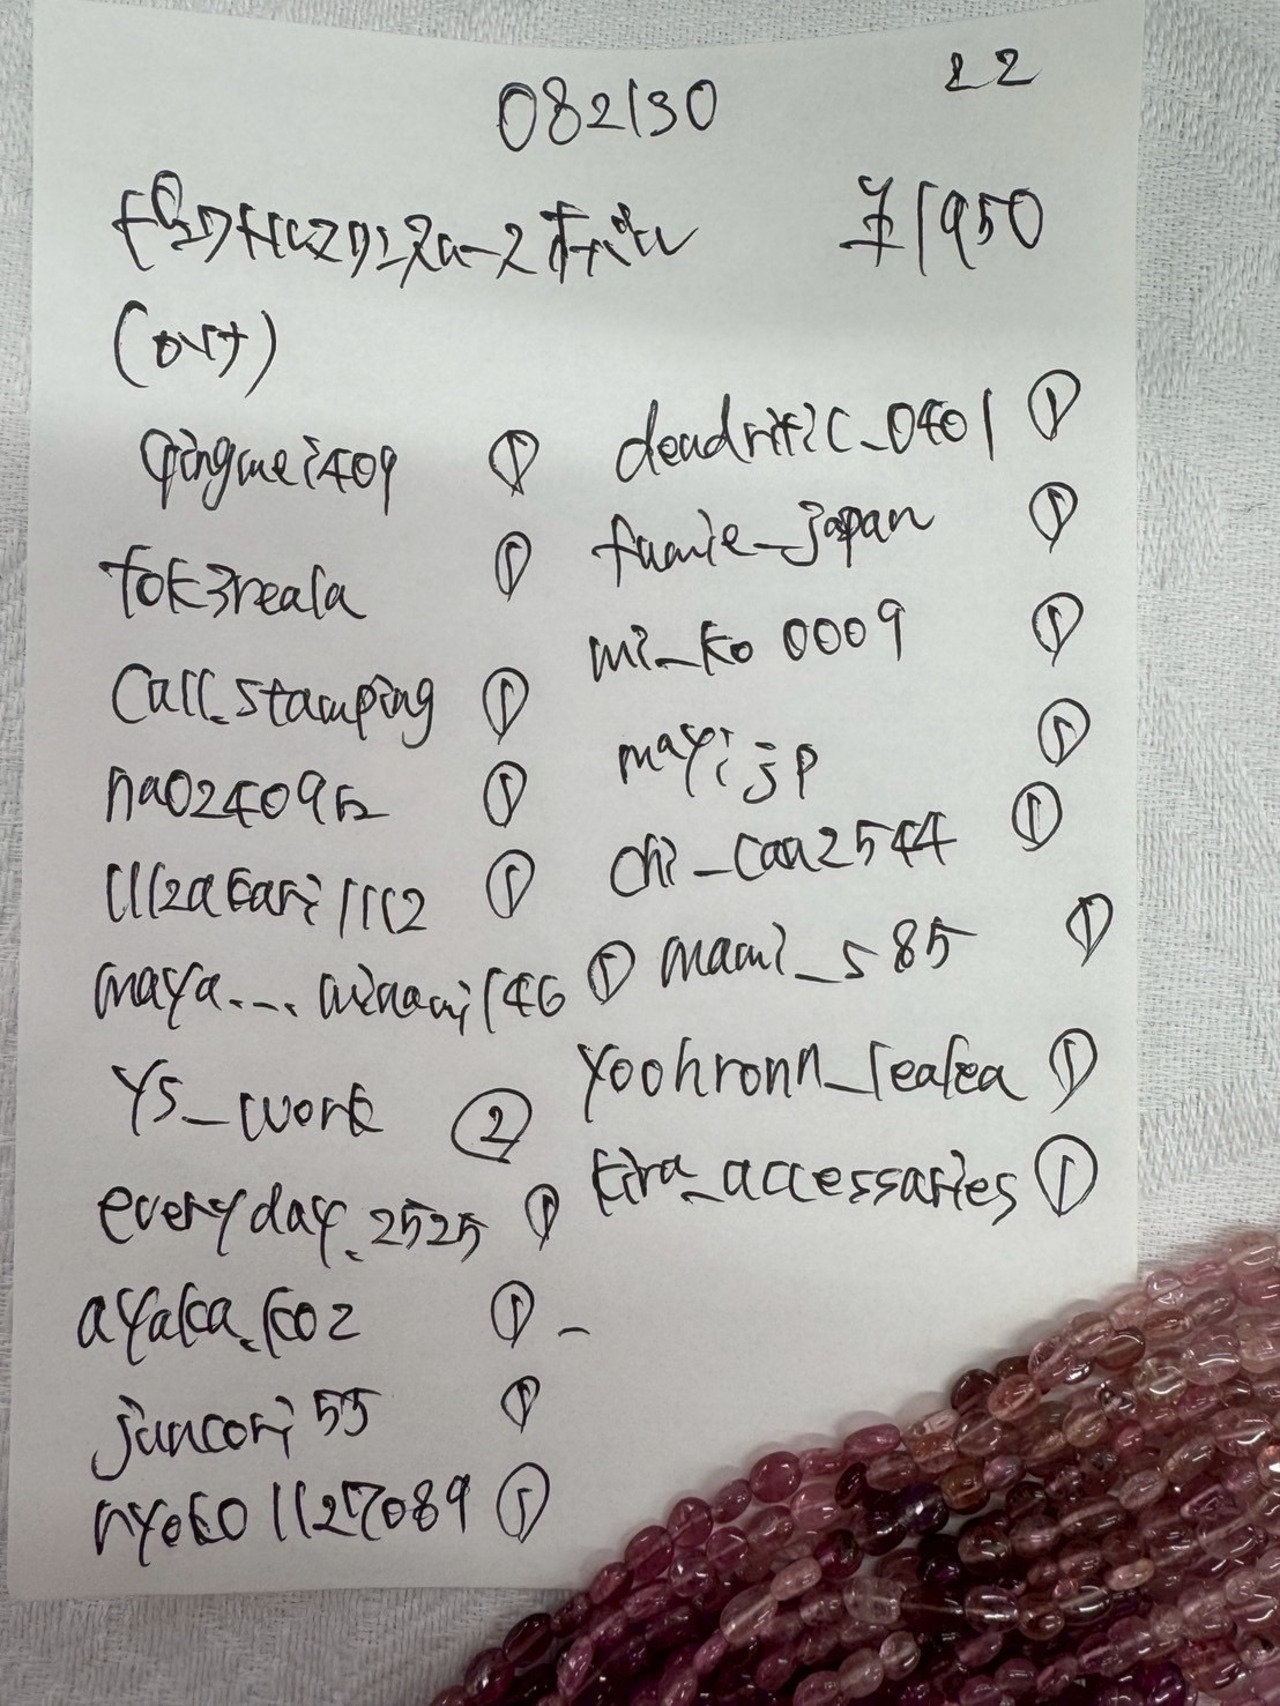 082130
22
¥1950
qingmei409 ①
tok3reala ①
Call_stamping ①
nao2409 ①
①
maya... minami146 ①
ys_work ②
everyday_2525 ①
ayaka_k02 ① -
juncori55 ①
ryoko1127089 ①
dendritic_0401 ①
fumie_japan ①
mi_ko0009 ①
mayijp ①
chi_caa2544 ①
mami_s85 ①
yoohronn_leafea ①
kira_accessaries ①